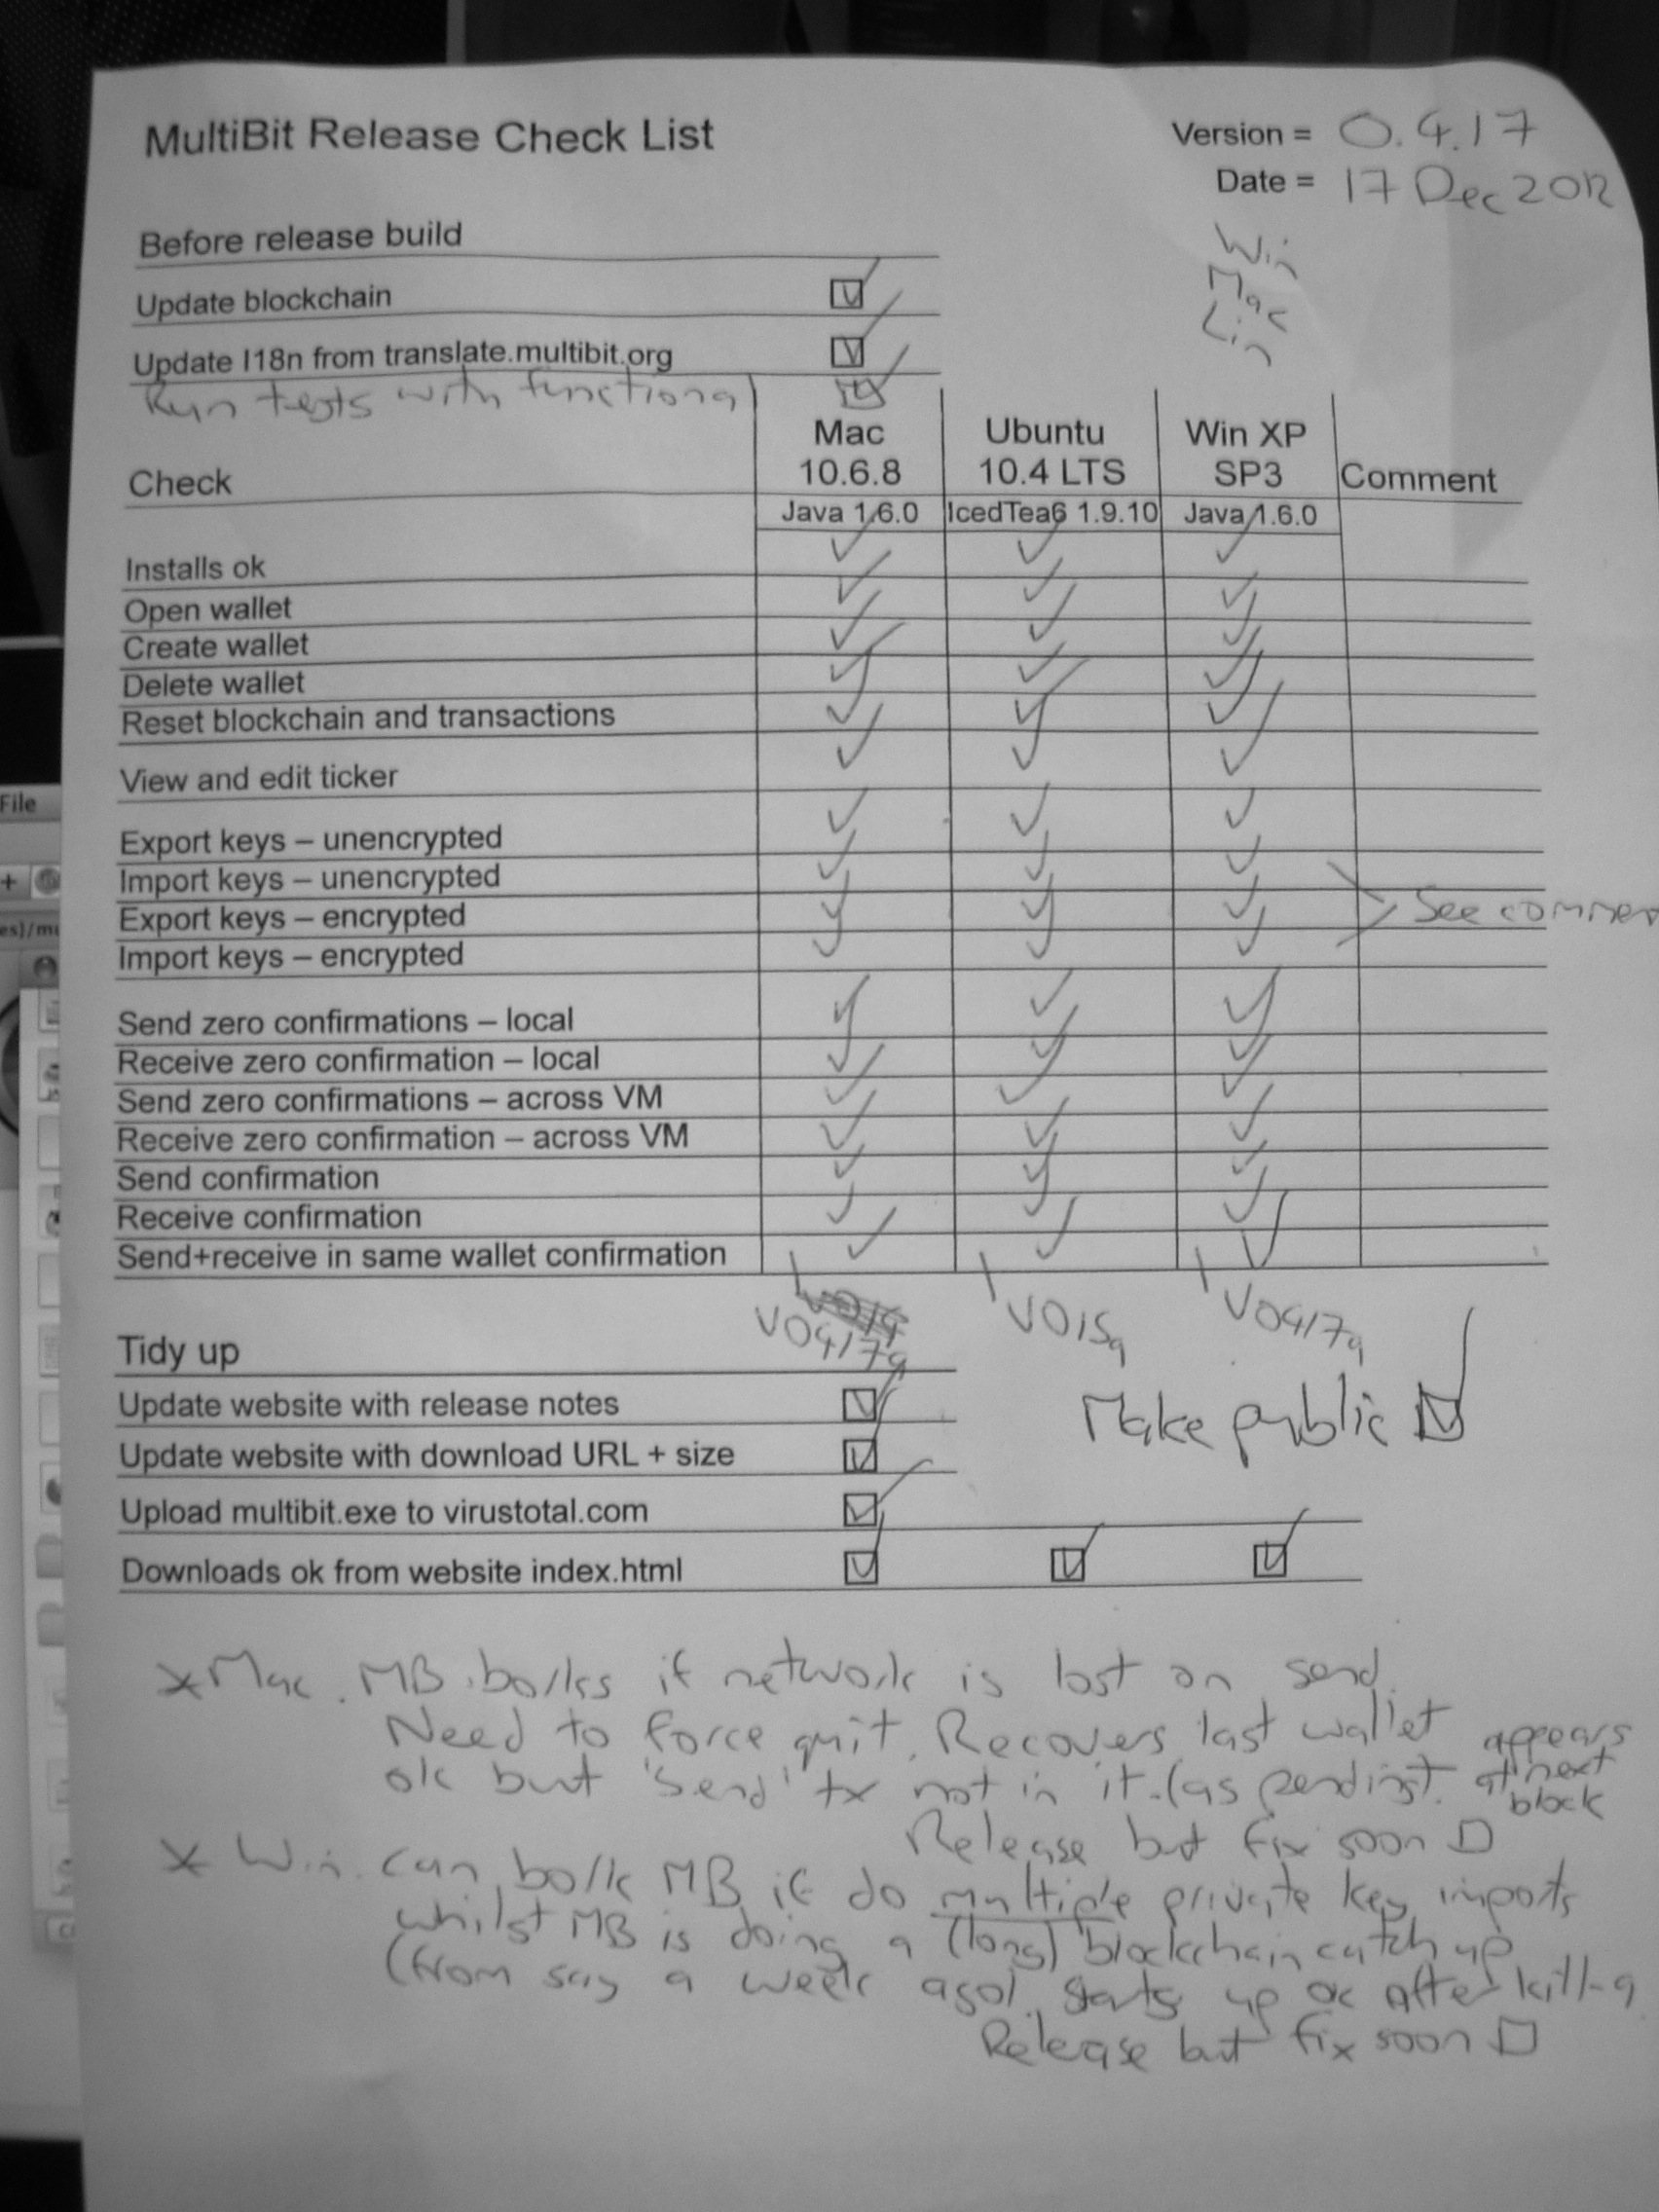 MultiBit Release Check List
Version = 0.4.17
Date = 17 Dec 2012
Win
Mac
Lin
Before release build
Update blockchain
Update I18n from translate.multibit.org
Run tests with functional
Check
Mac
10.6.8
Ubuntu
10.4 LTS
Win XP
SP3
Comment
Java 1.6.0
IcedTea6 1.9.10
Java 1.6.0
Installs ok
Open wallet
Create wallet
Delete wallet
Reset blockchain and transactions
View and edit ticker
Export keys – unencrypted
Import keys – unencrypted
Export keys – encrypted
See commen
Import keys – encrypted
Send zero confirmations – local
Receive zero confirmation – local
Send zero confirmations – across VM
Receive zero confirmation – across VM
Send confirmation
Receive confirmation
Send+receive in same wallet confirmation
V0417a
V015a
V0417a
Tidy up
Update website with release notes
Make public
Update website with download URL + size
Upload multibit.exe to virustotal.com
Downloads ok from website index.html
* Mac. MB borks if network is lost on send.
Need to force quit. Recovers last wallet
ok but 'send' tx not in it. (as pending).
appears
at next
block
Release but fix soon
* Win. Can bork MB if do multiple private key imports
whilst MB is doing a (long) blockchain catch up
(from say a week ago). Starts up ok after kill -9
Release but fix soon
File
+
es)/mu